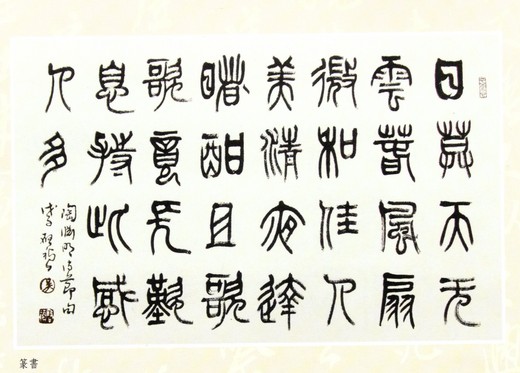 日暮天无
雲春風扇
微和佳人
美清夜達
曙酣且歌
歌竟長歎
息持此感
人多
陶淵明詩節句
篆書